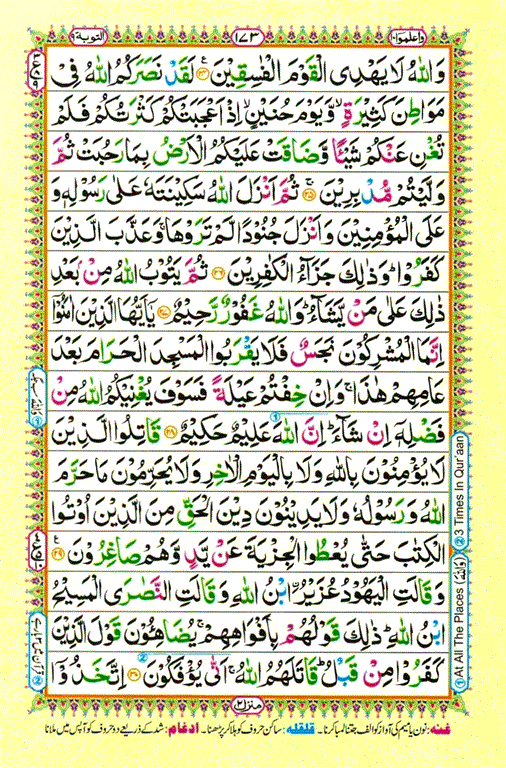 واعلموا ١٠
١٧٣
التوبة ٩
وَاللّٰهُ لَا يَهْدِى الْقَوْمَ الْفٰسِقِيْنَ ۝٢٤ لَقَدْ نَصَرَكُمُ اللّٰهُ فِىْ
مَوَاطِنَ كَثِيْرَةٍ ۙ وَّيَوْمَ حُنَيْنٍ ۙ اِذْ اَعْجَبَتْكُمْ كَثْرَتُكُمْ فَلَمْ
تُغْنِ عَنْكُمْ شَيْـًٔا وَّضَاقَتْ عَلَيْكُمُ الْاَرْضُ بِمَا رَحُبَتْ ثُمَّ
وَلَّيْتُمْ مُّدْبِرِيْنَ ۝٢٥ ثُمَّ اَنْزَلَ اللّٰهُ سَكِيْنَتَهٗ عَلٰى رَسُوْلِهٖ وَ
عَلَى الْمُؤْمِنِيْنَ وَاَنْزَلَ جُنُوْدًا لَّمْ تَرَوْهَا ۚ وَعَذَّبَ الَّذِيْنَ
كَفَرُوْا ؕ وَذٰلِكَ جَزَآءُ الْكٰفِرِيْنَ ۝٢٦ ثُمَّ يَتُوْبُ اللّٰهُ مِنْۢ بَعْدِ
ذٰلِكَ عَلٰى مَنْ يَّشَآءُ ؕ وَاللّٰهُ غَفُوْرٌ رَّحِيْمٌ ۝٢٧ يٰۤاَيُّهَا الَّذِيْنَ اٰمَنُوْۤا
اِنَّمَا الْمُشْرِكُوْنَ نَجَسٌ فَلَا يَقْرَبُوا الْمَسْجِدَ الْحَرَامَ بَعْدَ
عَامِهِمْ هٰذَا ۚ وَاِنْ خِفْتُمْ عَيْلَةً فَسَوْفَ يُغْنِيْكُمُ اللّٰهُ مِنْ
فَضْلِهٖۤ اِنْ شَآءَ ؕ اِنَّ اللّٰهَ عَلِيْمٌ حَكِيْمٌ ۝٢٨ قَاتِلُوا الَّذِيْنَ
لَا يُؤْمِنُوْنَ بِاللّٰهِ وَلَا بِالْيَوْمِ الْاٰخِرِ وَلَا يُحَرِّمُوْنَ مَا حَرَّمَ
اللّٰهُ وَرَسُوْلُهٗ وَلَا يَدِيْنُوْنَ دِيْنَ الْحَقِّ مِنَ الَّذِيْنَ اُوْتُوا
الْكِتٰبَ حَتّٰى يُعْطُوا الْجِزْيَةَ عَنْ يَّدٍ وَّهُمْ صٰغِرُوْنَ ۝٢٩
وَقَالَتِ الْيَهُوْدُ عُزَيْرُ ۨابْنُ اللّٰهِ وَقَالَتِ النَّصٰرَى الْمَسِيْحُ
ابْنُ اللّٰهِ ؕ ذٰلِكَ قَوْلُهُمْ بِاَفْوَاهِهِمْ ۚ يُضَاهِـُٔوْنَ قَوْلَ الَّذِيْنَ
كَفَرُوْا مِنْ قَبْلُ ؕ قَاتَلَهُمُ اللّٰهُ ۚ اَنّٰى يُؤْفَكُوْنَ ۝٣٠ اِتَّخَذُوْۤا
① At All The Places
② 3 Times In Qur'aan
منزل ٢
غنه: نون یا میم کی آواز کو الف جتنا لمبا کرنا۔ قلقله: ساکن حروف کو ہلا کر پڑھنا۔ ادغام: شد کے ذریعے دو حروف کو آپس میں ملانا